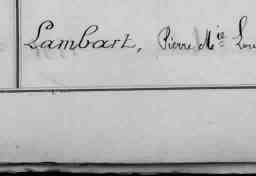 Lambart, Pierre Mie Lou